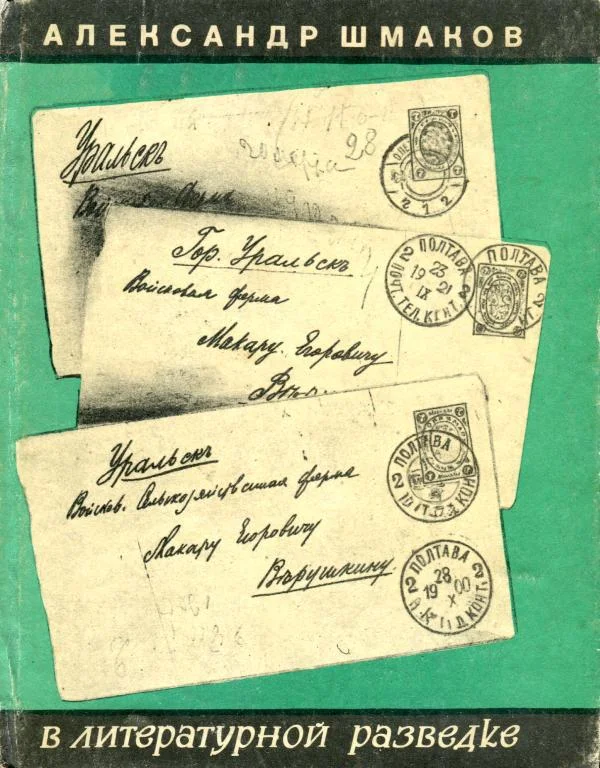 АЛЕКСАНДР ШМАКОВ
Уральскъ
28
212
Гор. Уральскъ
Войсковая ферма
Макару Егоровичу
ПОЛТАВА
23
19 21
IX
ПОЛТАВА
Уральскъ
Войсков. Сельскохозяйственная ферма
Макару Егоровичу
Вѣрушкину
ПОЛТАВА
ПОЛТАВА
28
19 00
X
в литературной разведке